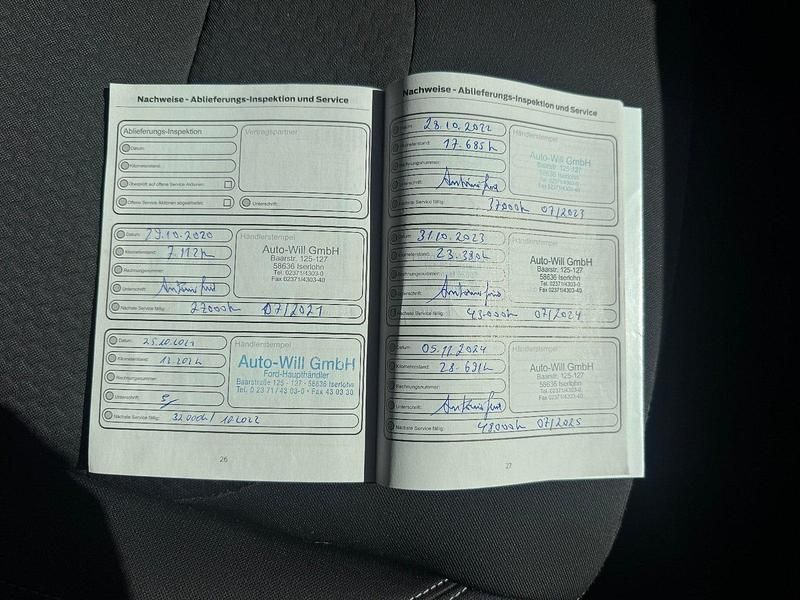 Nachweise - Ablieferungs-Inspektion und Service
Ablieferungs-Inspektion
Vertragspartner
Datum:
Kilometerstand:
Überprüft auf offene Service Aktionen:
Offene Service Aktionen abgearbeitet:
Unterschrift:
Datum: 29.10.2020
Kilometerstand: 7.112 km
Rechnungsnummer:
Unterschrift:
Nächste Service fällig: 27000km 07/2021
Händlerstempel
Auto-Will GmbH
Baarstr. 125-127
58636 Iserlohn
Tel. 02371/4303-0
Fax 02371/4303-40
Datum: 25.10.2021
Kilometerstand:
Rechnungsnummer:
Unterschrift:
Nächste Service fällig: 32000km / 10.2022
Händlerstempel
Auto-Will GmbH
Ford-Haupthändler
Baarstraße 125 - 127 - 58636 Iserlohn
Tel. 0 23 71 / 43 03-0 · Fax 43 03 30
26
Nachweise - Ablieferungs-Inspektion und Service
Datum: 28.10.2022
Kilometerstand: 17.685km
Rechnungsnummer:
Unterschrift:
Nächste Service fällig: 37000km 07/2023
Händlerstempel
Auto-Will GmbH
Baarstr. 125-127
58636 Iserlohn
Tel. 02371/4303-0
Fax 02371/4303-40
Datum: 31.10.2023
Kilometerstand: 23.380km
Rechnungsnummer:
Unterschrift:
Nächste Service fällig: 43000km 07/2024
Händlerstempel
Auto-Will GmbH
Baarstr. 125-127
58636 Iserlohn
Tel. 02371/4303-0
Fax 02371/4303-40
Datum: 05.11.2024
Kilometerstand: 28.691km
Rechnungsnummer:
Unterschrift:
Nächste Service fällig: 48000km 07/2025
Händlerstempel
Auto-Will GmbH
Baarstr. 125-127
58636 Iserlohn
Tel. 02371/4303-0
Fax 02371/4303-40
27